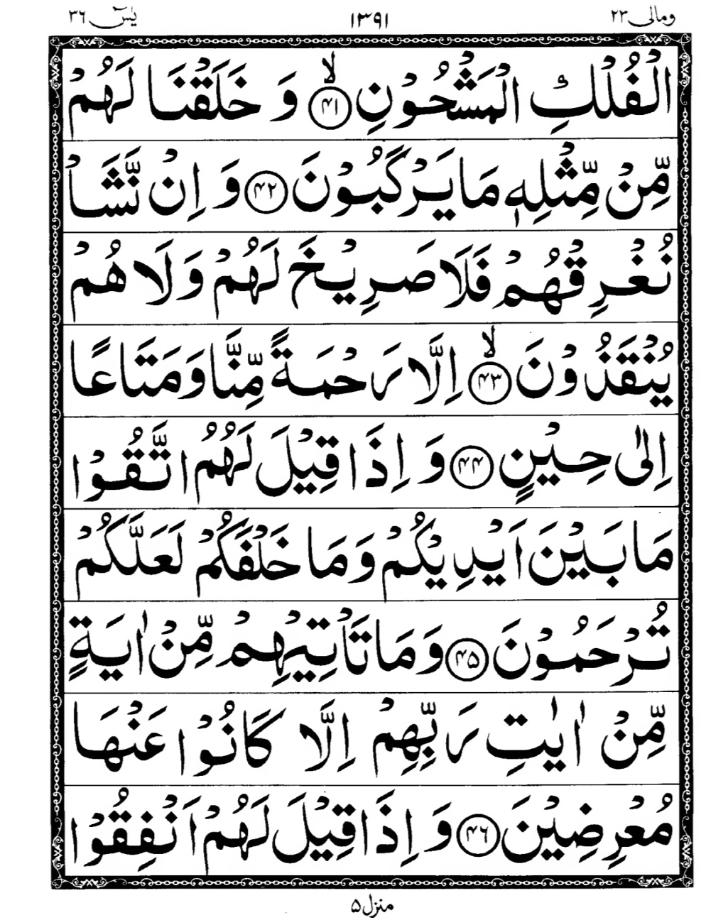 ومالی ۲۳ ۱۳۹۱ یٰسٓ ۳۶
الْفُلْكِ الْمَشْحُوْنِ ﴿۴۱﴾ۙ وَ خَلَقْنَا لَهُمْ
مِّنْ مِّثْلِهٖ مَا یَرْكَبُوْنَ ﴿۴۲﴾ وَ اِنْ نَّشَاْ
نُغْرِقْهُمْ فَلَا صَرِیْخَ لَهُمْ وَلَا هُمْ
یُنْقَذُوْنَ ﴿۴۳﴾ۙ اِلَّا رَحْمَةً مِّنَّا وَمَتَاعًا
اِلٰی حِیْنٍ ﴿۴۴﴾ وَ اِذَا قِیْلَ لَهُمُ اتَّقُوْا
مَا بَیْنَ اَیْدِیْكُمْ وَمَا خَلْفَكُمْ لَعَلَّكُمْ
تُرْحَمُوْنَ ﴿۴۵﴾ وَمَا تَاْتِیْهِمْ مِّنْ اٰیَةٍ
مِّنْ اٰیٰتِ رَبِّهِمْ اِلَّا كَانُوْا عَنْهَا
مُعْرِضِیْنَ ﴿۴۶﴾ وَ اِذَا قِیْلَ لَهُمْ اَنْفِقُوْا
منزل ۵